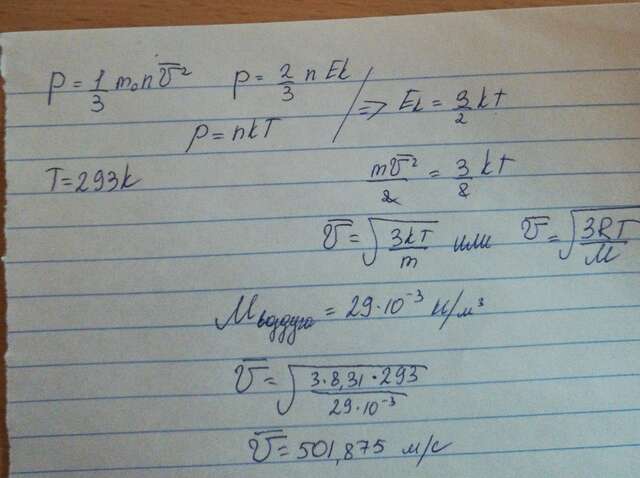 p = 1/3 m₀n v̄² p = 2/3 n Ek
p = nkT ⇒ Ek = 3/2 kt
T = 293k
mv̄²/2 = 3/2 kt
v̄ = √(3kT/m) или v̄ = √(3RT/M)
Mвоздуха = 29·10⁻³ н/м³
v̄ = √(3·8,31·293/29·10⁻³)
v̄ = 501,875 м/с